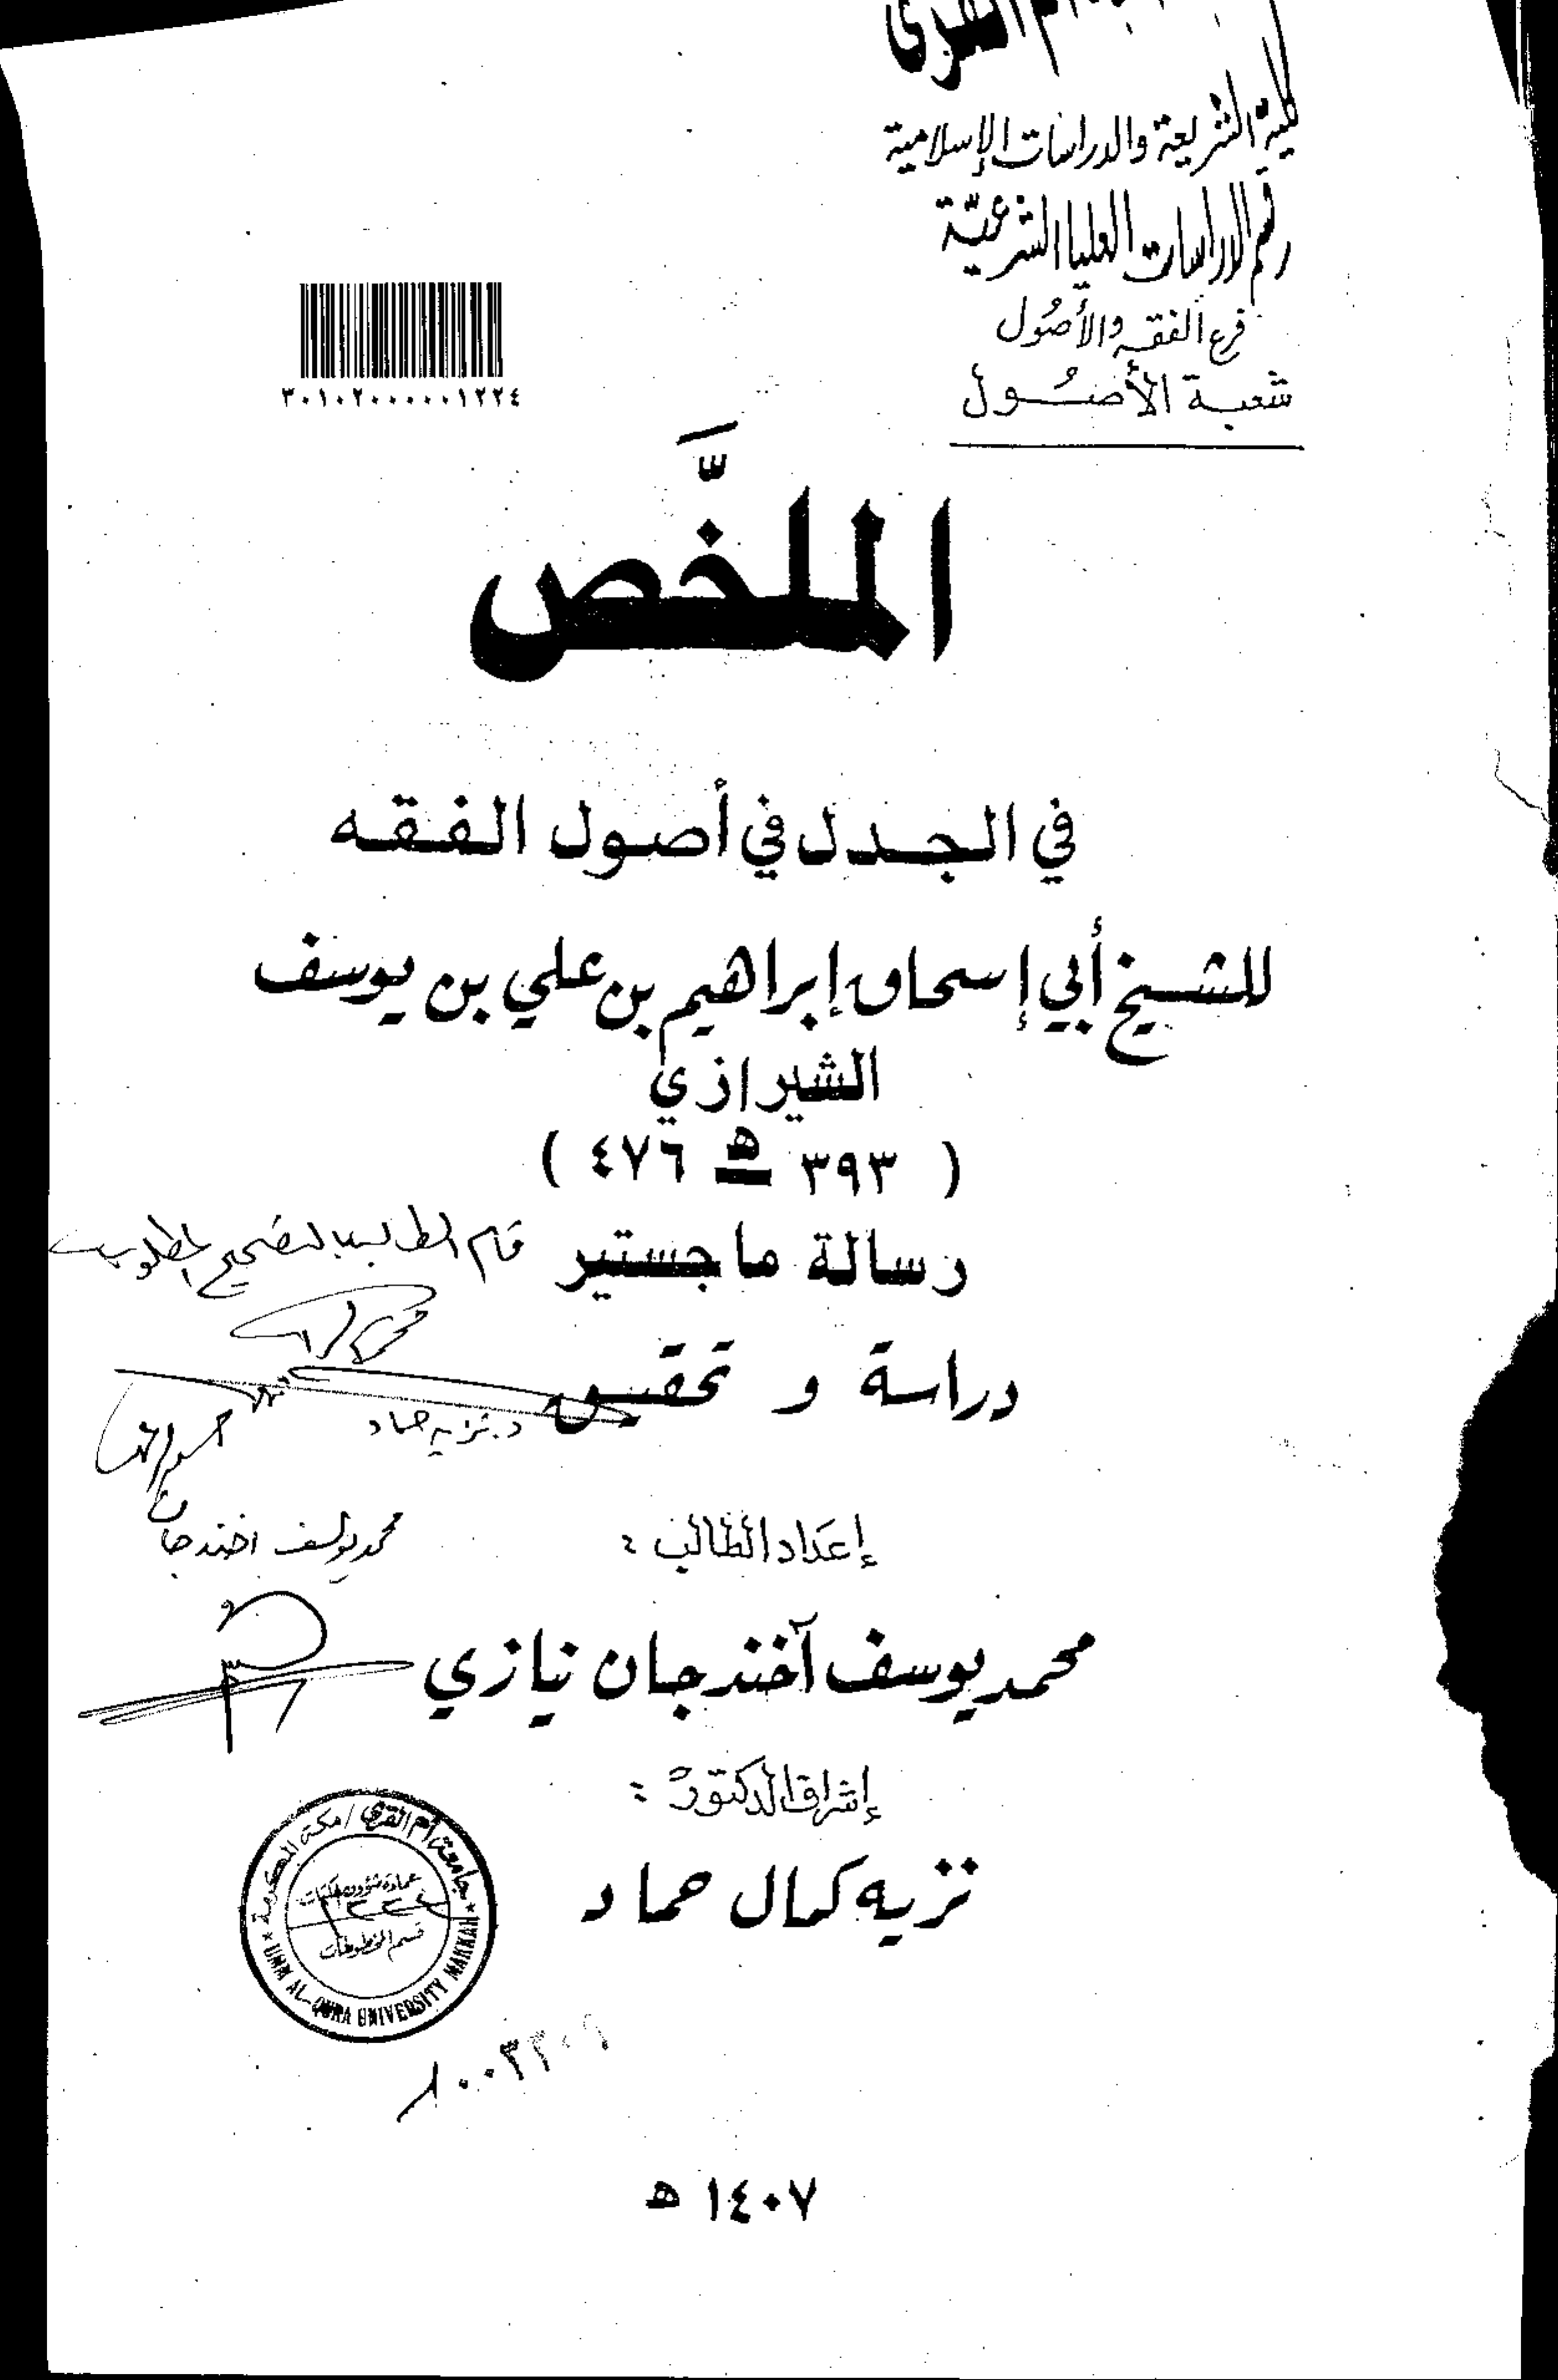 أم القرى
كلية الشريعة والدراسات الإسلامية
قسم الدراسات العليا الشرعيّة
فرع الفقه والأصُول
شعبة الأصُول
٣٠١٠٢٠٠٠٠٠٠١٢٢٤
الملخَّص
في الجدل في أصول الفقه
للشيخ أبي إسحاق إبراهيم بن علي بن يوسف
الشيرازي
( ٣٩٣ هـ ٤٧٦ )
رسالة ماجستير
قام الطالب بالتصحيح المطلوب
دراسة و تحقيق
د. نزيه حماد
إعَداد الطالب :
محمد يوسف اخندجان
محمد يوسف آخندجان نيازي
إشراف الدكتور :
نزيه كمال حماد
جامعة أم القرى / مكة المكرمة
عمادة شؤون المكتبات
قسم المخطوطات
UMM AL-QURA UNIVERSITY MAKKAH
١٤٠٧ ه